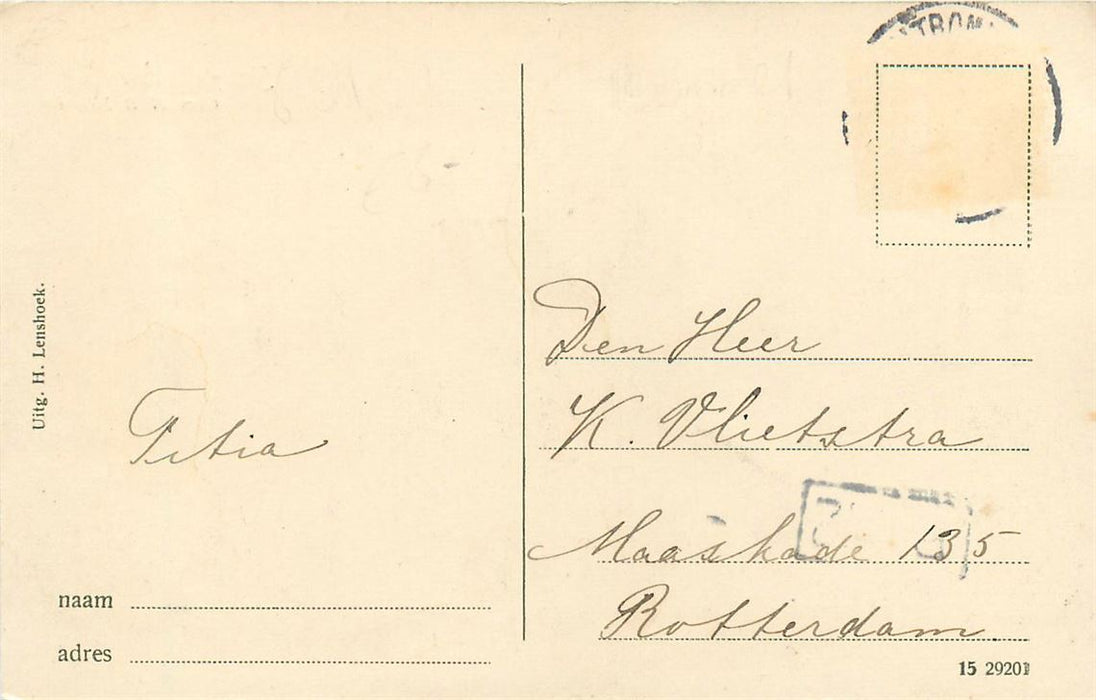 Uitg. H. Lenshoek.
Titia
naam
adres
Den Heer
K. Vlietstra
Maaskade 135
Rotterdam.
15 29201